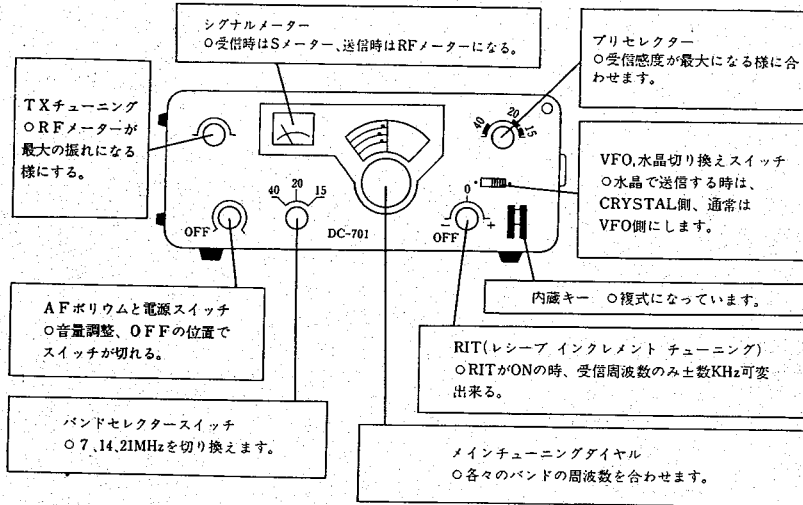 シグナルメーター
○受信時はSメーター、送信時はRFメーターになる。
プリセレクター
○受信感度が最大になる様に合
わせます。
TXチューニング
○RFメーターが
最大の振れになる
様にする。
VFO,水晶切り換えスイッチ
○水晶で送信する時は、
CRYSTAL側、通常は
VFO側にします。
40 20 15
40 20 15
0
OFF
DC-701
− +
OFF
内蔵キー ○複式になっています。
AFボリウムと電源スイッチ
○音量調整、OFFの位置で
スイッチが切れる。
RIT(レシーブ インクレメント チューニング)
○RITがONの時、受信周波数のみ±数KHz可変
出来る。
バンドセレクタースイッチ
○7、14、21MHzを切り換えます。
メインチューニングダイヤル
○各々のバンドの周波数を合わせます。